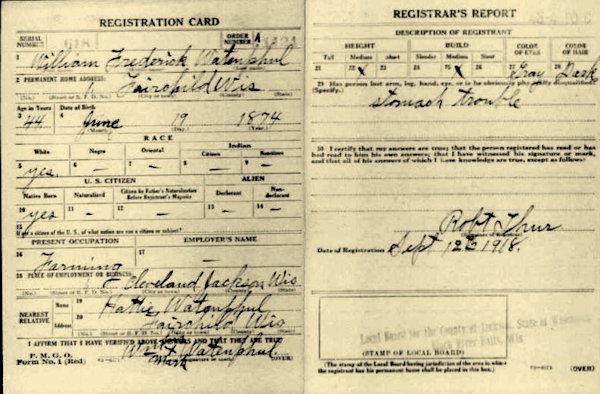 REGISTRATION CARD
SERIAL NUMBER
ORDER NUMBER A
1 William Frederick Watenphul
2 PERMANENT HOME ADDRESS:
Fairchild Wis
(No.) (Street or R. F. D. No.) (City or town) (County) (State)
Age in Years Date of Birth
3 44 4 June 19 1874
(Month.) (Day.) (Year.)
RACE
White Negro Oriental Indian
Citizen Noncitizen
5 yes 6 — 7 — 8 — 9 —
U. S. CITIZEN ALIEN
Native Born Naturalized Citizen by Father's Naturalization Before Registrant's Majority Declarant Non-declarant
10 yes 11 — 12 — 13 — 14 —
15 If not a citizen of the U. S., of what nation are you a citizen or subject?
PRESENT OCCUPATION EMPLOYER'S NAME
16 Farming 17 —
18 PLACE OF EMPLOYMENT OR BUSINESS:
Cleveland Jackson Wis
(No.) (Street or R. F. D. No.) (City or town) (County) (State)
NEAREST RELATIVE
Name 19 Hattie Watenphul
Address 20 Fairchild Wis
(No.) (Street or R. F. D. No.) (City or town) (County) (State)
I AFFIRM THAT I HAVE VERIFIED ABOVE ANSWERS AND THAT THEY ARE TRUE
P. M. G. O.
Form No. 1 (Red)
Wm X Watenphul
Mark
(OVER)
REGISTRAR'S REPORT
DESCRIPTION OF REGISTRANT
HEIGHT BUILD COLOR OF EYES COLOR OF HAIR
Tall Medium Short Slender Medium Stout
21 22 x 23 24 25 x 26 27 Gray 28 Dark
29 Has person lost arm, leg, hand, eye, or is he obviously physically disqualified?
(Specify.)
stomach trouble
30 I certify that my answers are true; that the person registered has read or has
had read to him his own answers; that I have witnessed his signature or mark,
and that all of his answers of which I have knowledge are true, except as follows:
Robt Thur
Date of Registration Sept 12 1918.
Local Board for the County of Jackson, State of Wisconsin
Black River Falls, Wis
(STAMP OF LOCAL BOARD)
(The stamp of the Local Board having jurisdiction of the area in which
the registrant has his permanent home shall be placed in this box.)
(OVER)